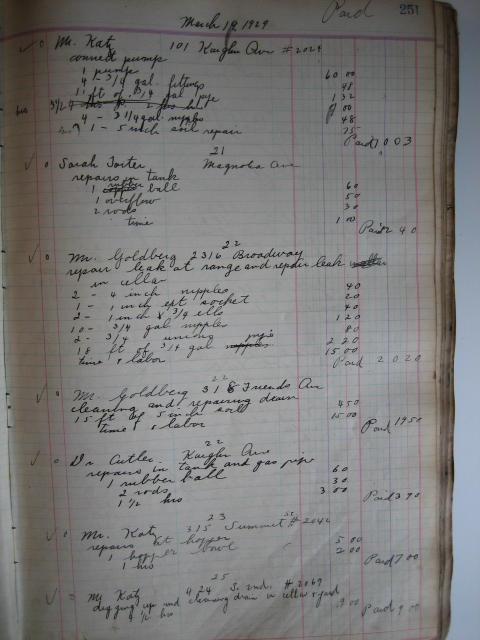 251
March 19 1929 Paid
Mr. Katz 101 Kaighn Ave #2029
connect pump
1 pump 60 00
4 - 3/4 gal. fittings 48
11 ft of 3/4 gal pipe 1 32
3 1/2 hrs
4 - 3/4 gal nipples 48
1 - 5 inch soil repair 75
Paid
21
Sarah Foster Magnolia Ave
repairs in tank
1 rubber ball 60
1 overflow 50
2 rods 30
time 1 00
Paid 2 40
22
Mr. Goldberg 2316 Broadway
repair leak at range and repair leak
in cellar
2 - 4 inch nipples 40
1 - 1 inch ext socket 20
2 - 1 inch x 3/4 ells 40
10 - 3/4 gal nipples 1 20
2 - 3/4 unions 80
18 ft of 3/4 gal pipe 2 20
time & labor 15 00
Paid 20 20
22
Mr. Goldberg 318 Friends Ave
cleaning and repairing drain
15 ft of 5 inch soil 4 50
time & labor 15 00
Paid 19 50
22
Dr Cutler Kaighn Ave
repairs in tank and gas pipe
1 rubber ball 60
2 rods 30
1 1/2 hrs 3 00
Paid 3 90
23
Mr. Katz 315 Summit St #2042
repairs at hopper
1 hopper bowl 5 00
1 hrs 2 00
Paid 7 00
25
Mr Katz 424 So 2nd. #2069
digging up and cleaning drain in cellar & yard
4 1/2 hrs 9 00
Paid 9 00